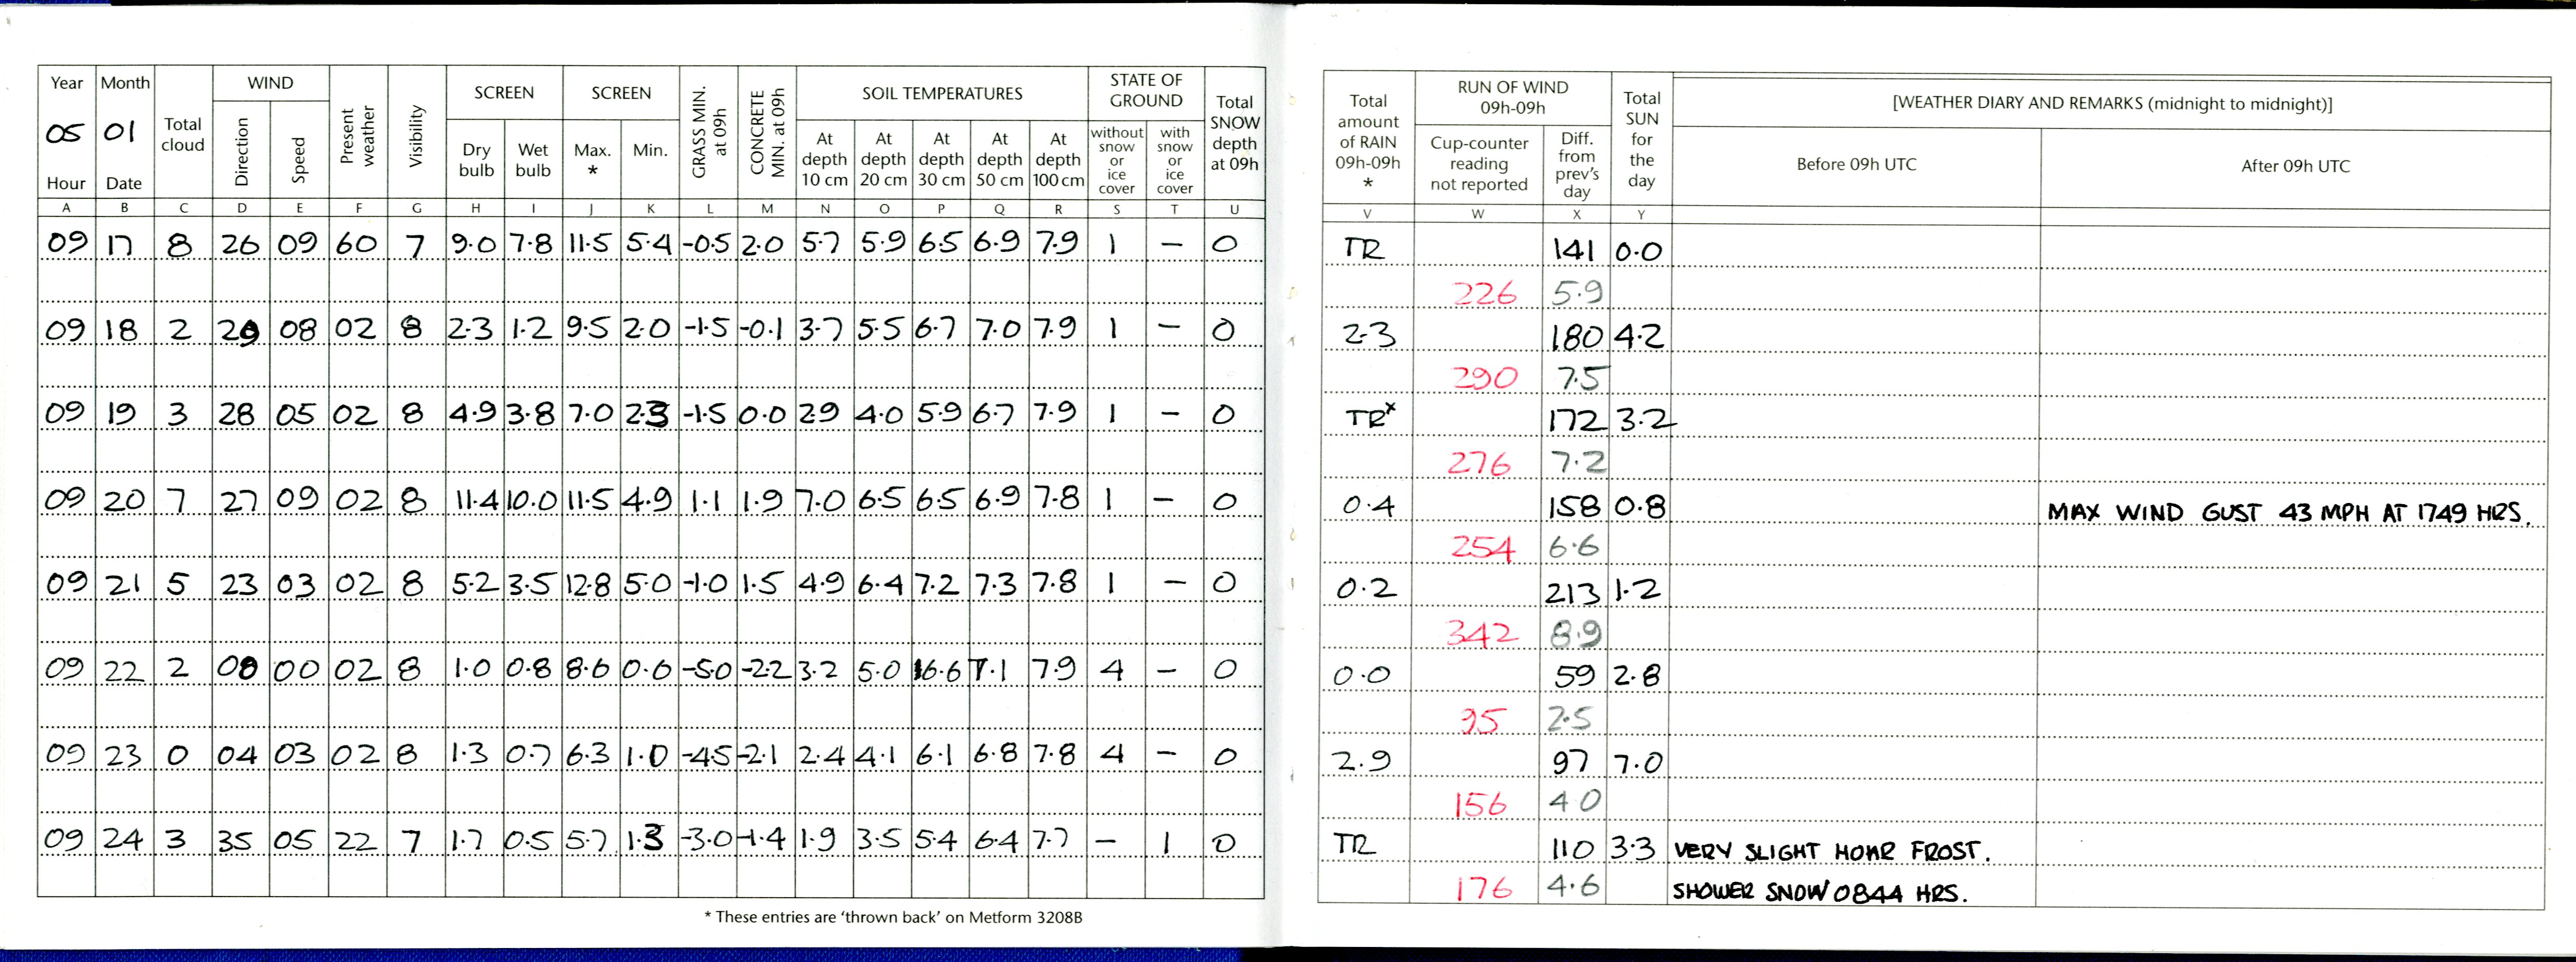 Year Month Total cloud WIND Present weather Visibility SCREEN SCREEN GRASS MIN. at 09h CONCRETE MIN. at 09h SOIL TEMPERATURES STATE OF GROUND Total SNOW depth at 09h
05 01 Direction Speed Dry bulb Wet bulb Max. * Min. At depth 10 cm At depth 20 cm At depth 30 cm At depth 50 cm At depth 100 cm without snow or ice cover with snow or ice cover
Hour Date
A B C D E F G H I J K L M N O P Q R S T U
09 17 8 26 09 60 7 9.0 7.8 11.5 5.4 -0.5 2.0 5.7 5.9 6.5 6.9 7.9 1 – 0
09 18 2 29 08 02 8 2.3 1.2 9.5 2.0 -1.5 -0.1 3.7 5.5 6.7 7.0 7.9 1 – 0
09 19 3 28 05 02 8 4.9 3.8 7.0 2.3 -1.5 0.0 2.9 4.0 5.9 6.7 7.9 1 – 0
09 20 7 27 09 02 8 11.4 10.0 11.5 4.9 1.1 1.9 7.0 6.5 6.5 6.9 7.8 1 – 0
09 21 5 23 03 02 8 5.2 3.5 12.8 5.0 -1.0 1.5 4.9 6.4 7.2 7.3 7.8 1 – 0
09 22 2 00 00 02 8 1.0 0.8 8.6 0.6 -5.0 -2.2 3.2 5.0 6.6 7.1 7.9 4 – 0
09 23 0 04 03 02 8 1.3 0.7 6.3 1.0 -4.5 -2.1 2.4 4.1 6.1 6.8 7.8 4 – 0
09 24 3 35 05 22 7 1.7 0.5 5.7 1.3 -3.0 -1.4 1.9 3.5 5.4 6.4 7.7 – 1 0
* These entries are 'thrown back' on Metform 3208B
Total amount of RAIN 09h-09h * RUN OF WIND 09h-09h Total SUN for the day [WEATHER DIARY AND REMARKS (midnight to midnight)]
Cup-counter reading not reported Diff. from prev's day Before 09h UTC After 09h UTC
V W X Y
TR 141 0.0
226 5.9
2.3 180 4.2
290 7.5
TRx 172 3.2
276 7.2
0.4 158 0.8 MAX WIND GUST 43 MPH AT 1749 HRS.
254 6.6
0.2 213 1.2
342 8.9
0.0 59 2.8
95 2.5
2.9 97 7.0
156 4.0
TR 110 3.3 VERY SLIGHT HOAR FROST.
176 4.6 SHOWER SNOW 0844 HRS.